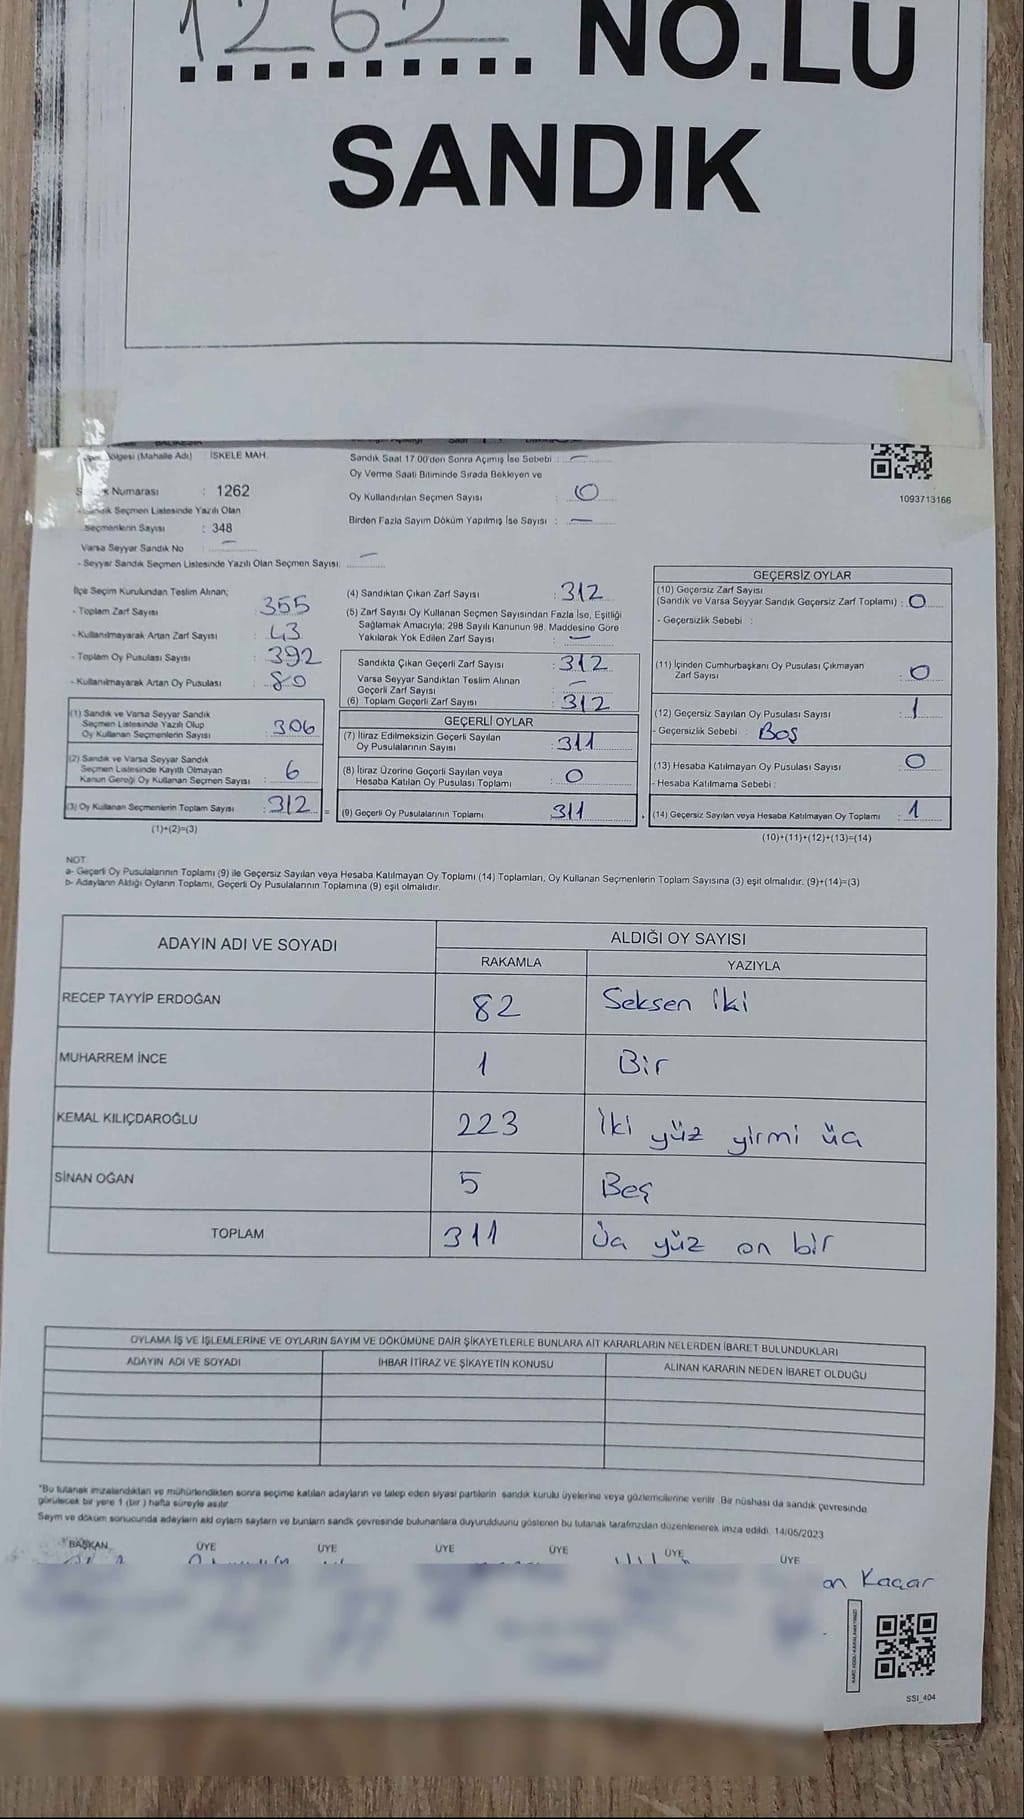 1262 NO.LU
SANDIK
Bölgesi (Mahalle Adı) İSKELE MAH.
Sandık Numarası : 1262
Sandık Seçmen Listesinde Yazılı Olan
Seçmenlerin Sayısı : 348
Varsa Seyyar Sandık No : —
- Seyyar Sandık Seçmen Listesinde Yazılı Olan Seçmen Sayısı: —
Sandık Saat 17:00'den Sonra Açımış İse Sebebi : —
Oy Verme Saati Bitiminde Sırada Bekleyen ve
Oy Kullandırılan Seçmen Sayısı : 0
Birden Fazla Sayım Döküm Yapılmış İse Sayısı : —
1093713166
İlçe Seçim Kurulundan Teslim Alınan;
- Toplam Zarf Sayısı : 355
- Kullanılmayarak Artan Zarf Sayısı : 43
- Toplam Oy Pusulası Sayısı : 392
- Kullanılmayarak Artan Oy Pusulası : 80
(1) Sandık ve Varsa Seyyar Sandık
Seçmen Listesinde Yazılı Olup
Oy Kullanan Seçmenlerin Sayısı : 306
(2) Sandık ve Varsa Seyyar Sandık
Seçmen Listesinde Kayıtlı Olmayan
Kanun Gereği Oy Kullanan Seçmen Sayısı : 6
(3) Oy Kullanan Seçmenlerin Toplam Sayısı : 312 =
(1)+(2)=(3)
(4) Sandıktan Çıkan Zarf Sayısı : 312
(5) Zarf Sayısı Oy Kullanan Seçmen Sayısından Fazla İse, Eşitliği
Sağlamak Amacıyla; 298 Sayılı Kanunun 98. Maddesine Göre
Yakılarak Yok Edilen Zarf Sayısı : —
Sandıkta Çıkan Geçerli Zarf Sayısı : 312
Varsa Seyyar Sandıktan Teslim Alınan
Geçerli Zarf Sayısı : —
(6) Toplam Geçerli Zarf Sayısı : 312
GEÇERLİ OYLAR
(7) İtiraz Edilmeksizin Geçerli Sayılan
Oy Pusulalarının Sayısı : 311
(8) İtiraz Üzerine Geçerli Sayılan veya
Hesaba Katılan Oy Pusulaları Toplamı : 0
(9) Geçerli Oy Pusulalarının Toplamı : 311
GEÇERSİZ OYLAR
(10) Geçersiz Zarf Sayısı
(Sandık ve Varsa Seyyar Sandık Geçersiz Zarf Toplamı) : 0
- Geçersizlik Sebebi :
(11) İçinden Cumhurbaşkanı Oy Pusulası Çıkmayan
Zarf Sayısı : 0
(12) Geçersiz Sayılan Oy Pusulası Sayısı : 1
- Geçersizlik Sebebi : Boş
(13) Hesaba Katılmayan Oy Pusulası Sayısı : 0
- Hesaba Katılmama Sebebi :
(14) Geçersiz Sayılan veya Hesaba Katılmayan Oy Toplamı : 1
(10)+(11)+(12)+(13)=(14)
NOT
a- Geçerli Oy Pusulalarının Toplamı (9) ile Geçersiz Sayılan veya Hesaba Katılmayan Oy Toplamı (14) Toplamları, Oy Kullanan Seçmenlerin Toplam Sayısına (3) eşit olmalıdır. (9)+(14)=(3)
b- Adayların Aldığı Oyların Toplamı, Geçerli Oy Pusulalarının Toplamına (9) eşit olmalıdır.
ADAYIN ADI VE SOYADI ALDIĞI OY SAYISI
RAKAMLA YAZIYLA
RECEP TAYYİP ERDOĞAN 82 Seksen iki
MUHARREM İNCE 1 Bir
KEMAL KILIÇDAROĞLU 223 İki yüz yirmi üç
SİNAN OĞAN 5 Beş
TOPLAM 311 Üç yüz on bir
OYLAMA İŞ VE İŞLEMLERİNE VE OYLARIN SAYIM VE DÖKÜMÜNE DAİR ŞİKAYETLERLE BUNLARA AİT KARARLARIN NELERDEN İBARET BULUNDUKLARI
ADAYIN ADI VE SOYADI İHBAR İTİRAZ VE ŞİKAYETİN KONUSU ALINAN KARARIN NEDEN İBARET OLDUĞU
"Bu tutanak imzalandıktan ve mühürlendikten sonra seçime katılan adayların ve talep eden siyasi partilerin sandık kurulu üyelerine veya gözlemcilerine verilir. Bir nüshası da sandık çevresinde
görülecek bir yere 1 (bir ) hafta süreyle asılır.
Sayım ve döküm sonucunda adayların ald oyların sayıların ve bunların sandk çevresinde bulunanlara duyurulduunu gösteren bu tutanak tarafmzdan düzenlenerek imza edildi. 14/05/2023
BAŞKAN ÜYE ÜYE ÜYE ÜYE ÜYE ÜYE
on Kaçar
SSI_404